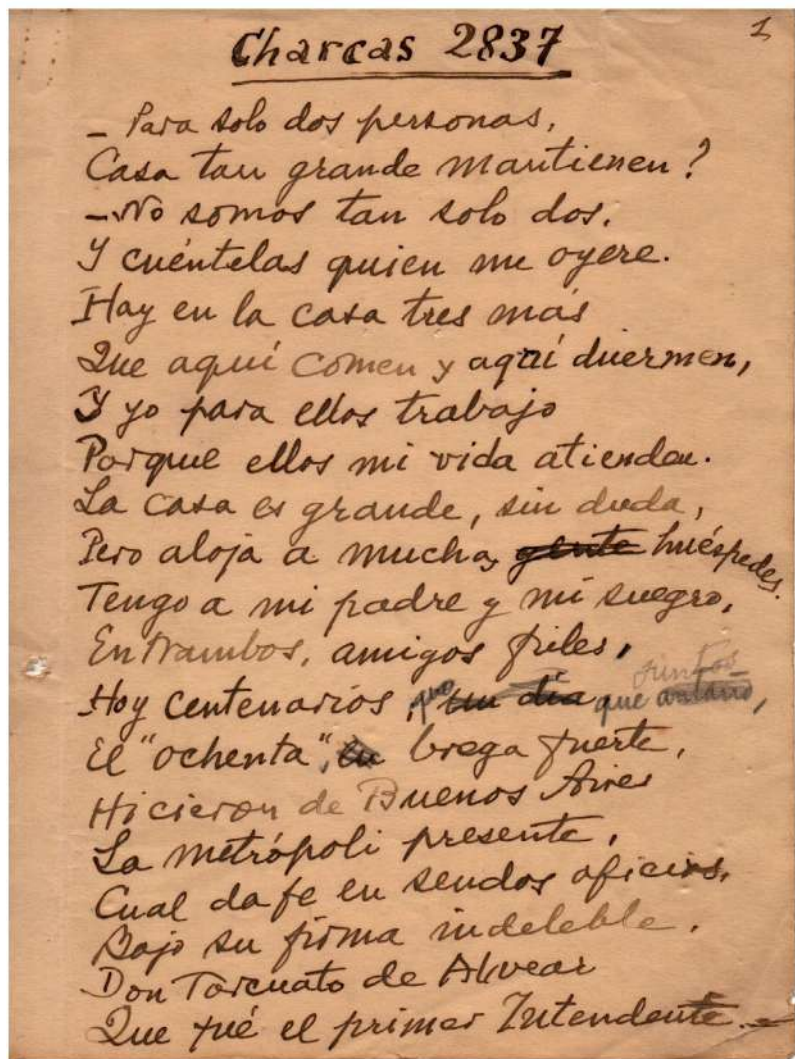 1
Charcas 2837
- Para solo dos personas,
Casa tan grande mantienen?
- No somos tan solo dos.
Y cuéntelas quien me oyere.
Hay en la casa tres más
Que aquí comen y aquí duermen,
Y yo para ellos trabajo
Porque ellos mi vida atienden.
La casa es grande, sin duda,
Pero aloja a muchos gente huéspedes.
Tengo a mi padre y mi suegro,
Entrambos, amigos fieles,
juntos
Hoy centenarios, que un dia que antaño,
El "ochenta", en brega fuerte,
Hicieron de Buenos Aires
La metrópoli presente,
Cual da fe en sendos oficios,
Bajo su firma indeleble,
Don Torcuato de Alvear
Que fué el primer Intendente.